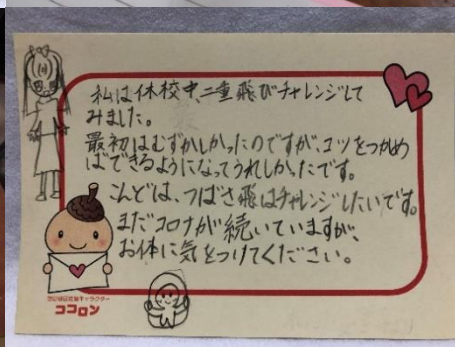 私は休校中、二重飛びチャレンジして
みました。
最初はむずかしかったのですが、コツをつかめ
ばできるようになってうれしかったです。
こんどは、つばさ飛びチャレンジしたいです。
まだコロナが続いていますが、
お体に気をつけてください。
ココロン